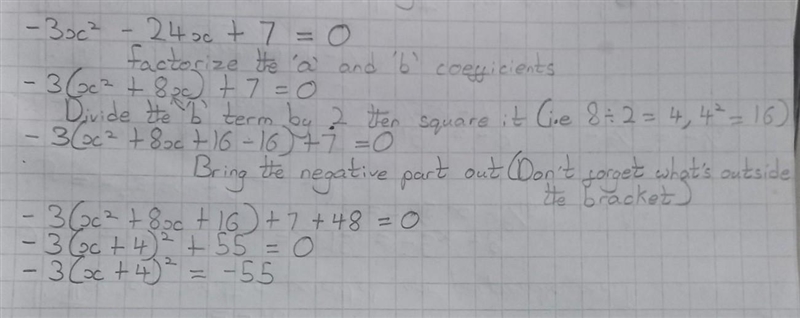 -3x² - 24x + 7 = 0
factorize the 'a' and 'b' coefficients
-3(x² + 8x) + 7 = 0
Divide the 'b' term by 2 then square it (i.e 8 ÷ 2 = 4, 4² = 16)
-3(x² + 8x + 16 - 16) + 7 = 0
Bring the negative part out (Don't forget what's outside
the bracket)
-3(x² + 8x + 16) + 7 + 48 = 0
-3(x + 4)² + 55 = 0
-3(x + 4)² = -55